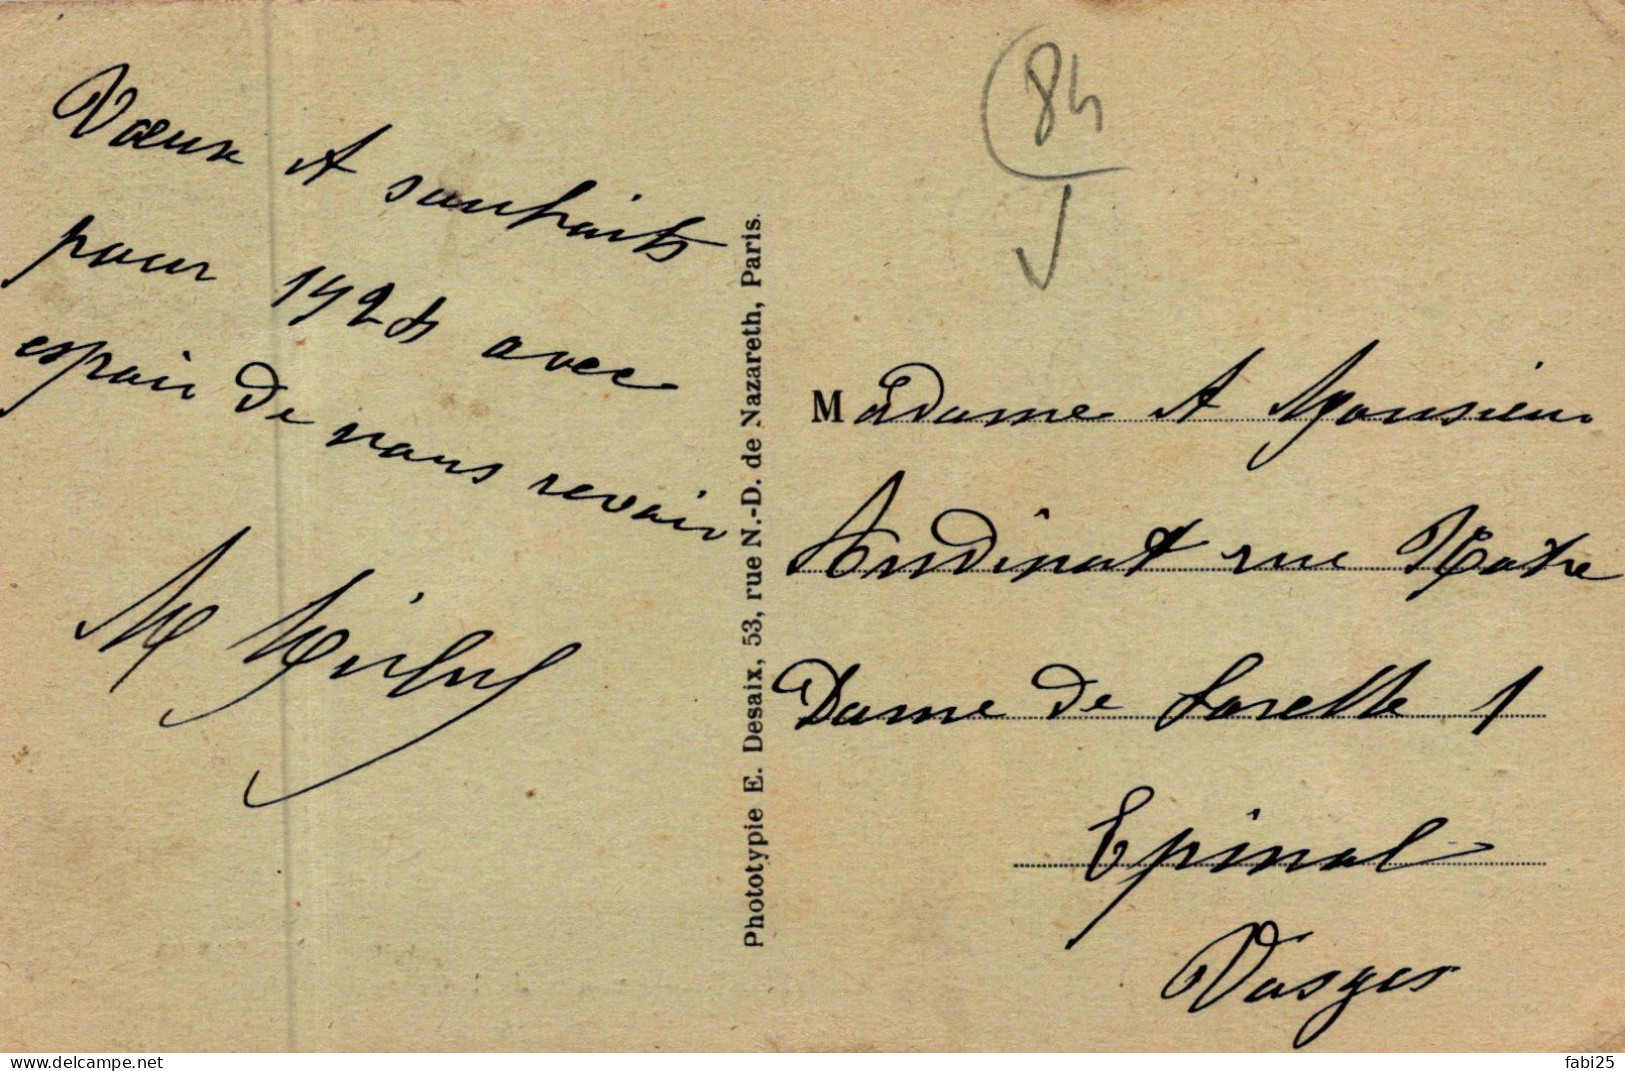 84
Vœux et souhaits
pour 1924 avec
espoir de vous revoir
M
Phototypie E. Desaix, 53, rue N.-D. de Nazareth, Paris.
Madame et Monsieur
rue Notre
Dame de Lorette 1
Epinal
Vosges
www.delcampe.net
fabi25